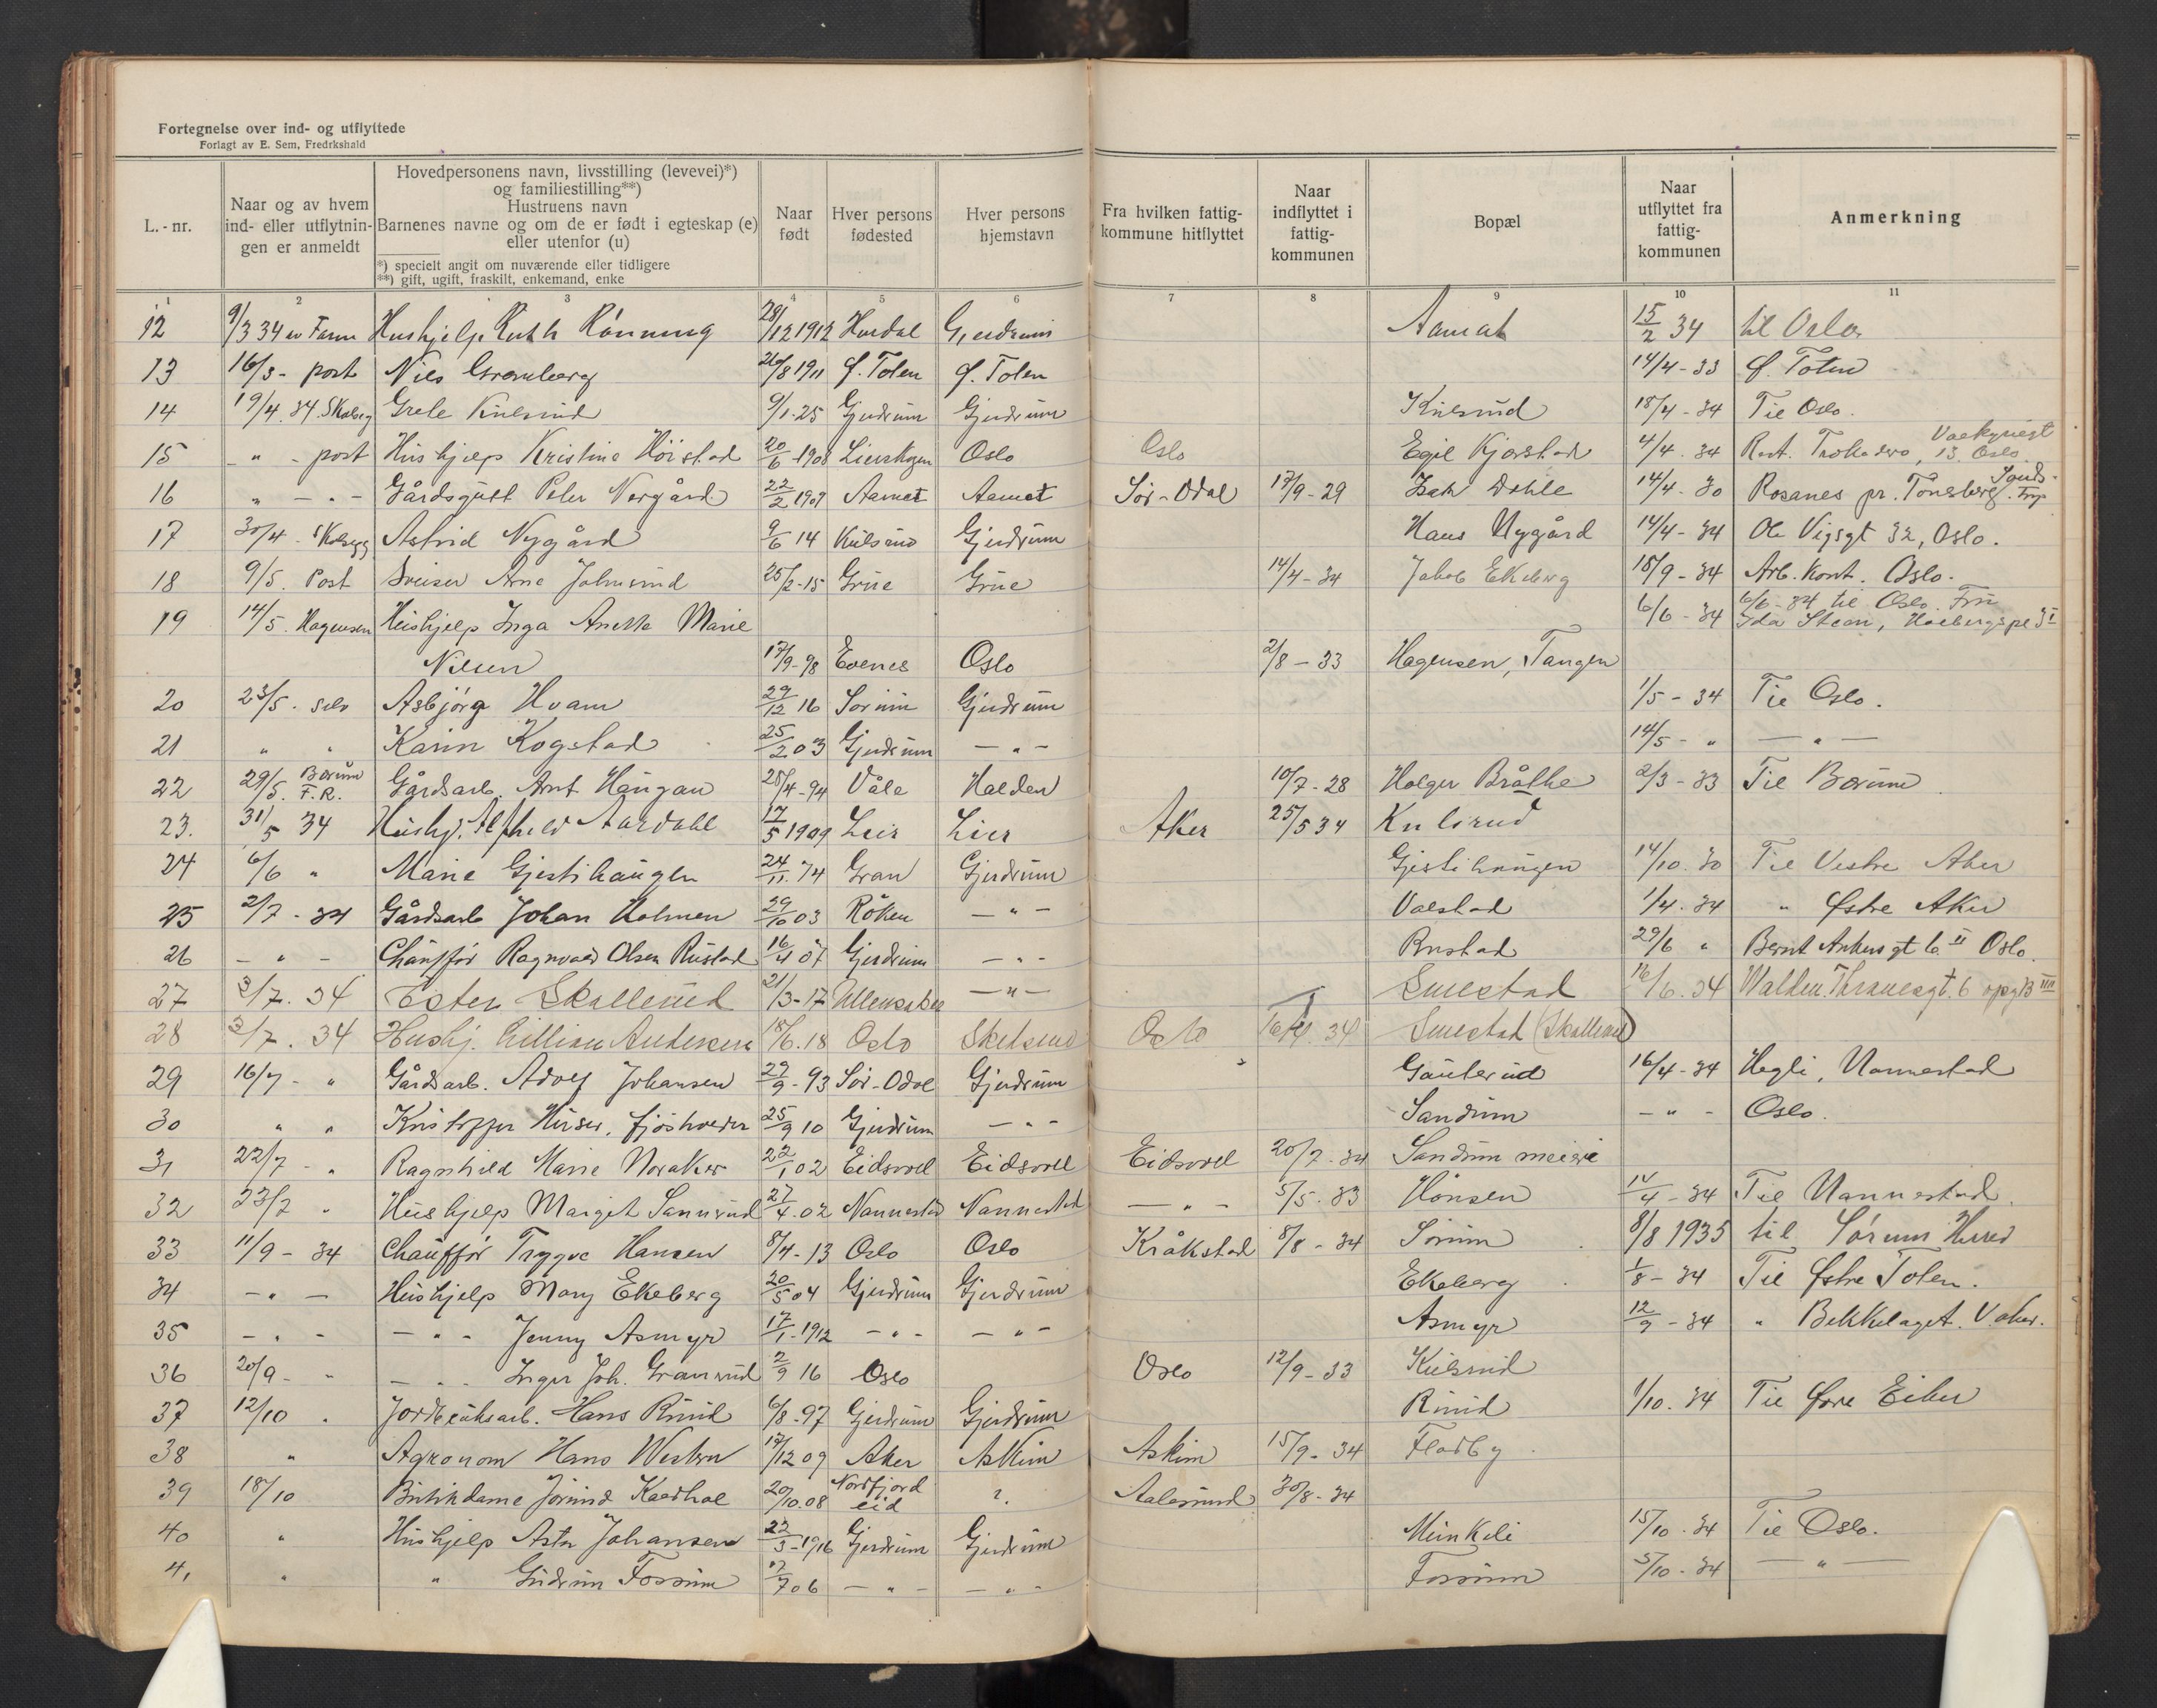 Fortegnelse over ind- og utflyttede
Forlagt av E. Sem, Fredrkshald
L.-nr.
Naar og av hvem ind- eller utflytnin- gen er anmeldt
Hovedpersonens navn, livsstilling (levevei)*)
og familiestilling**)
Hustruens navn
Barnenes navne og om de er født i egteskap (e)
eller utenfor (u)
*) specielt angit om nuværende eller tidligere
**) gift, ugift, fraskilt, enkemand, enke
Naar født
Hver persons fødested
Hver persons hjemstavn
Fra hvilken fattig- kommune hitflyttet
Naar indflyttet i fattig- kommunen
Bopæl
Naar utflyttet fra fattig- kommunen
Anmerkning
1 2 3 4 5 6 7 8 9 10 11
12 9/3 34 Hushjelp Ruth Rønning 28/12 1912 Hurdal Gjerdrum Aamot 15/2 34 til Oslo
13 16/3 - post Nils Gramberg 26/8 1911 Ø. Toten Ø. Toten 14/4-33 Ø. Toten
14 19/4. 34. Skolseg Grete Kulsrud 9/1-25 Gjerdrum Gjerdrum Kulsrud 18/4-34 Til Oslo.
15 - " - post Hushjelp Kristine Höistad 20/6-1908 Lierskogen Oslo Oslo Egil Kjorstad 4/4. 34 Rest. Trokadero, 13. Oslo
16 " - " - Gårdsgutt Peter Norgård 22/2 1909 Aamot Aamot Sör-Odal 17/9-29 Isak Dohle 14/4-30 Rosanes pr. Tönsberg.
17 30/4 - Astrid Nygård 9/6 14 Kulsrud Gjerdrum Hans Nygård 14/4-34 Ole Vigsgt 32, Oslo.
18 9/5. Post Sveiser Arne Johnsrud 25/2-15 Grue Grue 14/4-34 Jakob Ekeberg 18/9-34 Arb. Kont. Oslo.
19 14/5. Hagensen Hushjelp Inga Anetta Marie 6/6-34 6/6-34 til Oslo. Fru
Ida Steen,
Nilsen 17/9-98 Evenes Oslo 2/8-33 Hagensen, Tangen
20 23/5. selv Asbjörg Hvam 29/12 16 Sorum Gjerdrum 1/5-34 Til Oslo.
21 " " Karin Kogstad 25/2 03 Gjerdrum - " - 14/5 - " - " -
22 29/5. Bærum F.R. Gårdsarb. Arnt Haugan 28/4-94 Våle Halden 10/7-28 Holger Bråthe 2/3-33 Til Bærum
23. 31/5 34 Hushj. Alfhild Aardahl 17/5 1909 Leir Lier Aker 25/5 34 Kulsrud
24 6/6 " Marie Gjestihaugen 24/11. 74 Gran Gjerdrum Gjestihaugen 14/10. 30 Til Vestre Aker
25 2/7-34 Gårdsarb Johan Holmen 29/10 03 Röken - " - Valstad 1/4. 34 " Østre Aker
26 - " - Chauffør Ragnvald Olsen Rustad 16/4 07 Gjerdrum - " - Rustad 29/6 " Bernt Ankersgt 6 II Oslo.
27 3/7. 34 Ester Skallerud 21/3-17 Ullensaker - " - Smestad 16/6. 34 Waldem. Thranesgt. 6 opg B IIII
28 3/7. 34 Hushj. Lillian Andersen 18/6. 18 Oslo Skedsmo Oslo Smestad (Skallerud)
29 16/7 - " Gårdsarb. Adolf Johansen 27/9-93 Sör-Odal Gjerdrum Gauterud 16/4-34 Hegli, Nannestad
30 " " Kristoffer Huser, fjøsrøkter 25/9 10 Gjerdrum - " - Sandum - " - Oslo.
31 22/7 - " Ragnhild Marie Noraker 22/1 02 Eidsvoll Eidsvoll Eidsvoll 20/7-34 Sandum meieri
32 23/7 " Hushjelp Margit Sannerud 27/4. 02 Nannestad Nannestad - " - 5/5. 33 Hönsen 14/4-34 Til Nannestad.
33 11/9-34 Chauffør Trygve Hansen 8/4-13 Oslo Oslo Kråkstad 8/8-34 Sörum 8/8 1935 til Sørum Herred
34 - " - Hushjelp Mary Ekeberg 20/5 04 Gjerdrum Gjerdrum Ekeberg 1/8-34 Til Østre Toten.
35 - " - - " - Jenny Asmyr 17/1-1912 - " - - " - Asmyr 12/9-34 " Bekkelaget. V. Aker.
36 20/9 - " - " - Inger Joh. Gramrud 2/9 16 Oslo Oslo 12/9-33 Kulsrud
37 12/10 " Jordbruksarb. Hans Rinid 6/8-97 Gjerdrum Gjerdrum Rinid 1/10. 34 Til Øvre Eiker
38 " Agronom Hans Western 17/12 09 Aker Askim Askim 15/9-34 Fladby
39 18/10 Butikdame Jorund Kaldhol 20/10. 08 Nordfjord eid ?. Aalesund 30/8-34
40 " Hushjelp Asta Johansen 22/3-1916 Gjerdrum Gjerdrum Munkeli 15/10. 34 Til Oslo.
41 " " Gudrun Fossum 17/7 06 - " - - " - Fossum 5/10-34 - " -